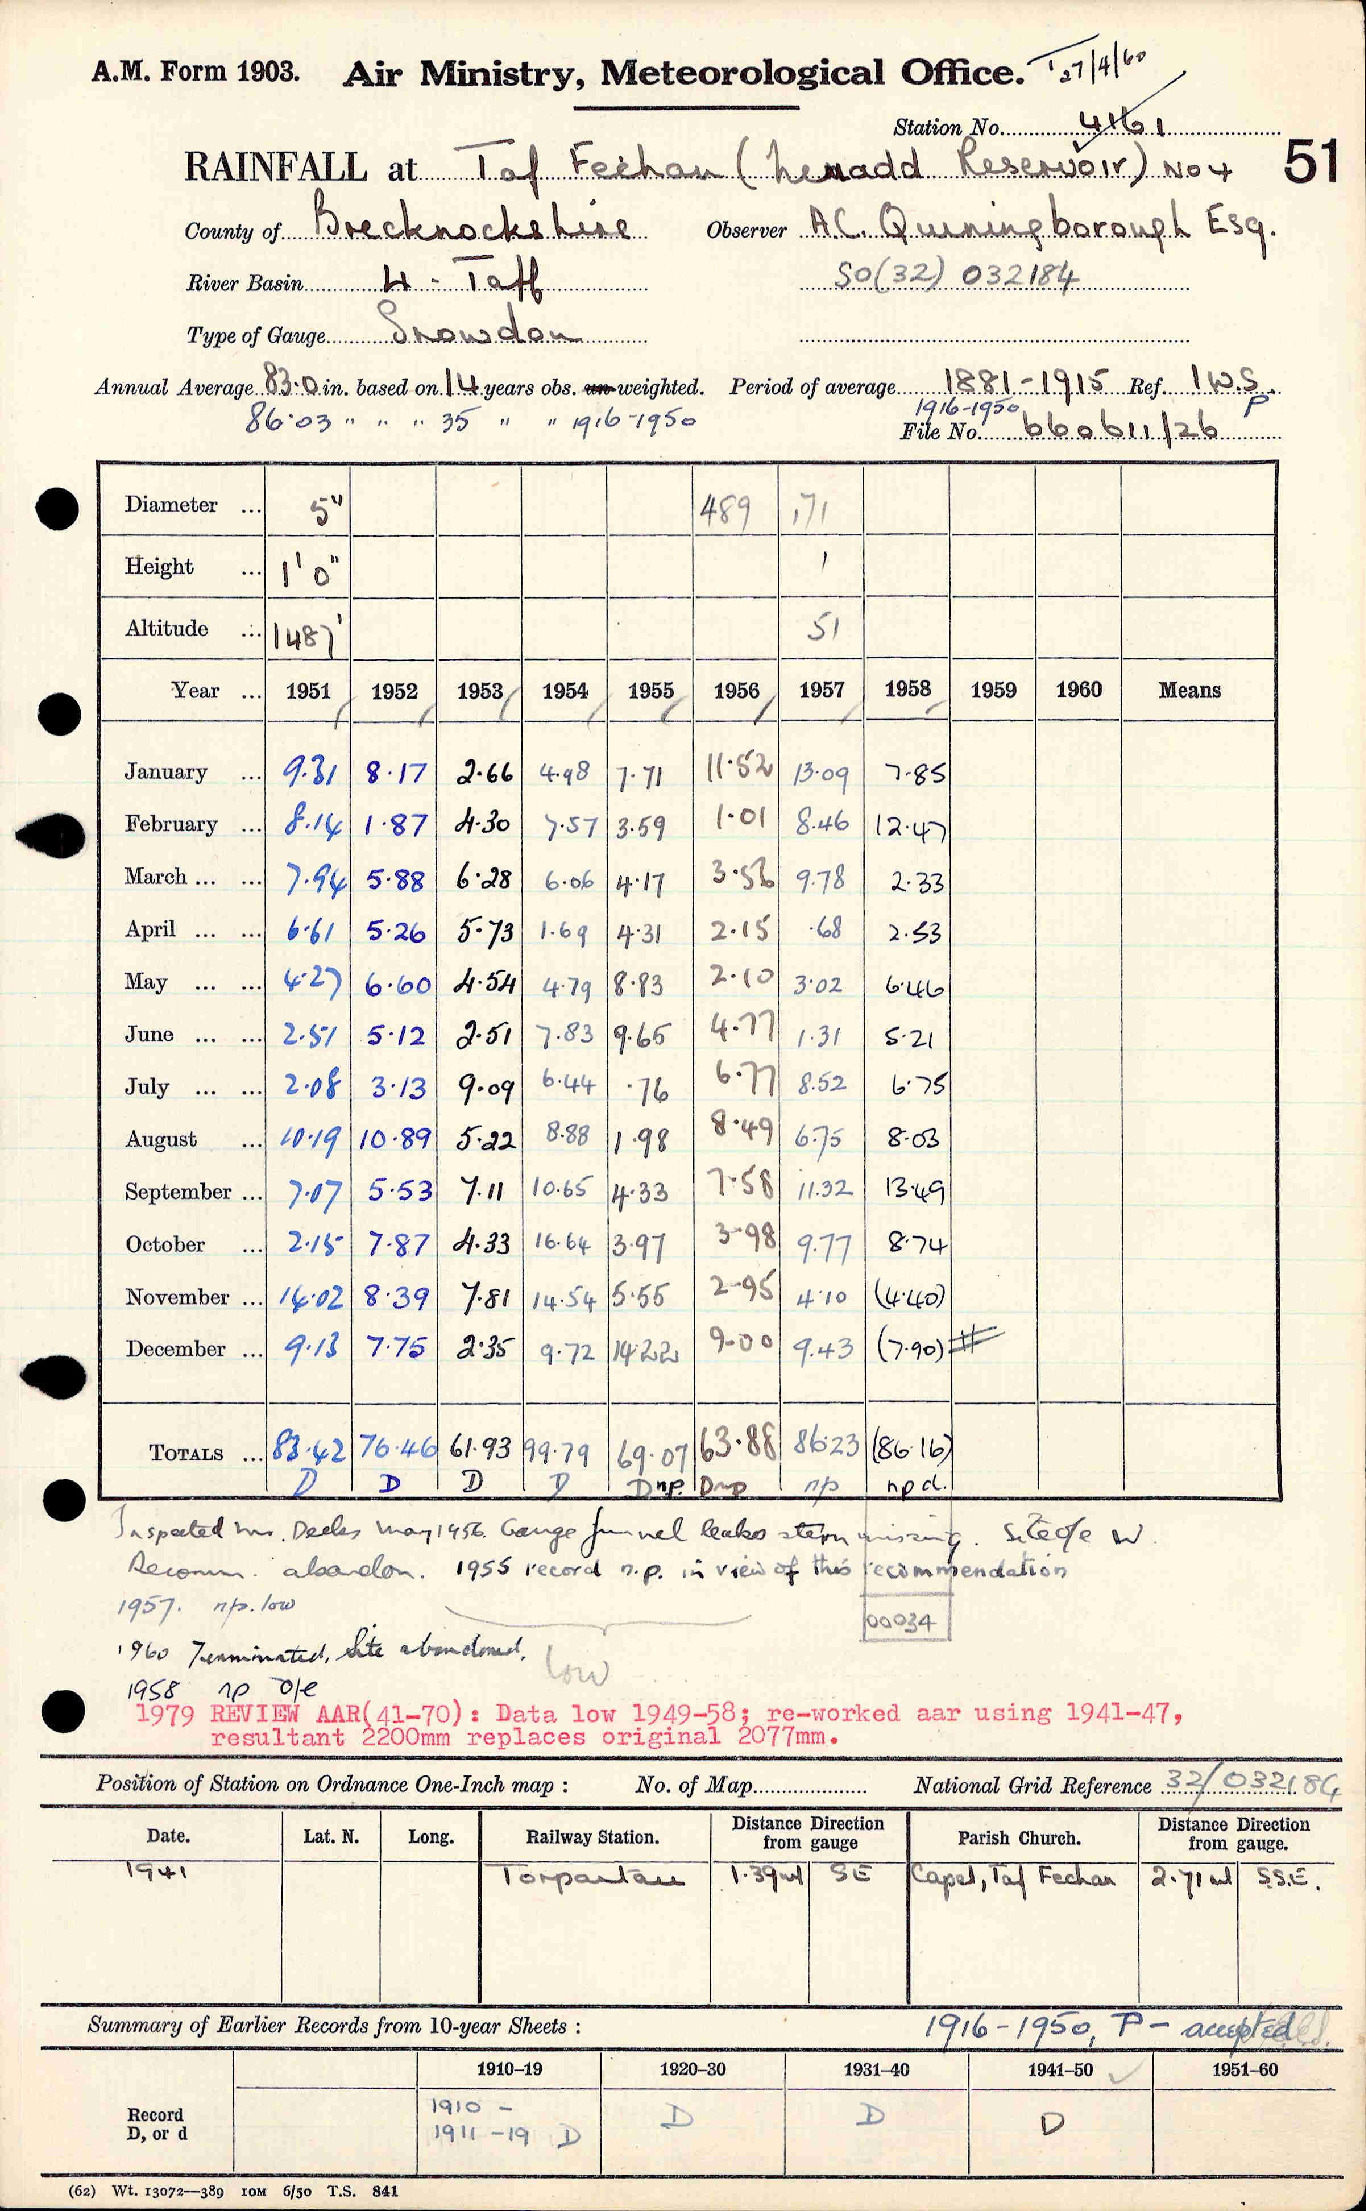 A.M. Form 1903. Air Ministry, Meteorological Office. T 27/4/60
Station No. 4161
RAINFALL at Taf Fechan ( Reservoir) No 4 51
County of Brecknockshire Observer A.C. Quinningborough Esq.
River Basin 4 - Taff SO(32) 032184
Type of Gauge Snowdon
Annual Average 83.0 in. based on 14 years obs. un-weighted. Period of average 1881-1915 Ref. I W.S.
86.03 " " " 35 " " 1916-1950 1916-1950 P
File No. 660611/26
Diameter ... 5" 489 171
Height ... 1' 0" 1
Altitude ... 1487' 51
Year ... 1951 1952 1953 1954 1955 1956 1957 1958 1959 1960 Means
January ... 9.31 8.17 2.66 4.98 7.71 11.52 13.09 7.85
February ... 8.14 1.87 4.30 7.57 3.59 1.01 8.46 12.47
March ... ... 7.94 5.88 6.28 6.06 4.17 3.56 9.78 2.33
April ... ... 6.61 5.26 5.73 1.69 4.31 2.15 .68 2.53
May ... ... 4.27 6.60 4.54 4.79 8.83 2.10 3.02 6.46
June ... ... 2.51 5.12 2.51 7.83 9.65 4.77 1.31 5.21
July ... ... 2.08 3.13 9.09 6.44 .76 6.77 8.52 6.75
August ... 10.19 10.89 5.22 8.88 1.98 8.49 6.75 8.03
September ... 7.07 5.53 7.11 10.65 4.33 7.58 11.32 13.49
October ... 2.15 7.87 4.33 16.64 3.97 3.98 9.77 8.74
November ... 14.02 8.39 7.81 14.54 5.55 2.95 4.10 (4.40)
December ... 9.13 7.75 2.35 9.72 14.22 9.00 9.43 (7.90) #
TOTALS ... 83.42 76.46 61.93 99.79 69.07 63.88 86.23 (86.16)
D D D D D np. D np np np d.
Inspected Mr. May 1956. Gauge funnel leaks stem missing. Site o/e W.
Recomm. abandon. 1955 record n.p. in view of this recommendation
1957. np. low
00034
1960 Terminated, Site abandoned.
low
1958 np o/e
1979 REVIEW AAR(41-70): Data low 1949-58; re-worked aar using 1941-47,
resultant 2200mm replaces original 2077mm.
Position of Station on Ordnance One-Inch map : No. of Map National Grid Reference 32/032184
Date. Lat. N. Long. Railway Station. Distance from gauge Direction Parish Church. Distance from gauge. Direction
1941 Torpantau 1.39 ml SE Capel, Taf Fechan 2.71 ml S.S.E.
Summary of Earlier Records from 10-year Sheets : 1916-1950, P - accepted
1910-19 1920-30 1931-40 1941-50 1951-60
Record D, or d 1910 -
1911-19 D D D D
(62) Wt. 13072—389 IOM 6/50 T.S. 841